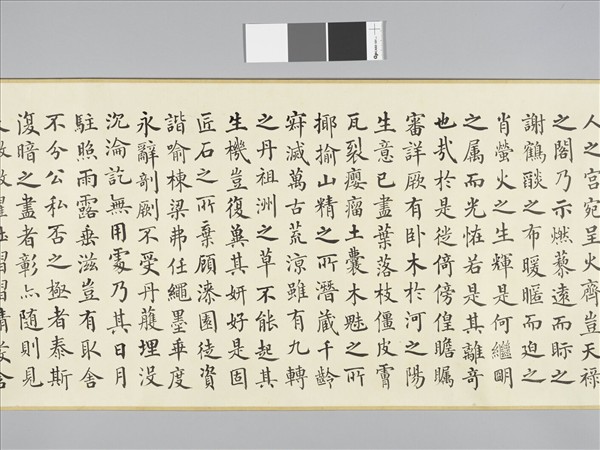 人之宮宛呈火齊豈天祿
之閣乃示燃藜遠而眎之
謝鶴燄之布暖暱而迫之
肖螢火之生輝是何繼明
之属而光恠若是其離奇
也㢤於是徙倚傍偟瞻矚
審詳厥有卧木於河之陽
生意已盡葉落枝僵皮霤
瓦裂癭瘤土囊木魅之所
揶揄山精之所潛蔵千齡
寂滅萬古荒涼雖有九轉
之丹祖洲之草不能起其
生機豈復兾其妍好是固
匠石之所棄顧漆園徒資
諧喻棟梁弗任繩墨乖度
永辭剞劂不受丹雘埋没
沉淪訖無用處乃其日月
駐照雨露垂滋豈有取舍
不分公私否之極者泰斯
復暗之盡者彰亦随則見